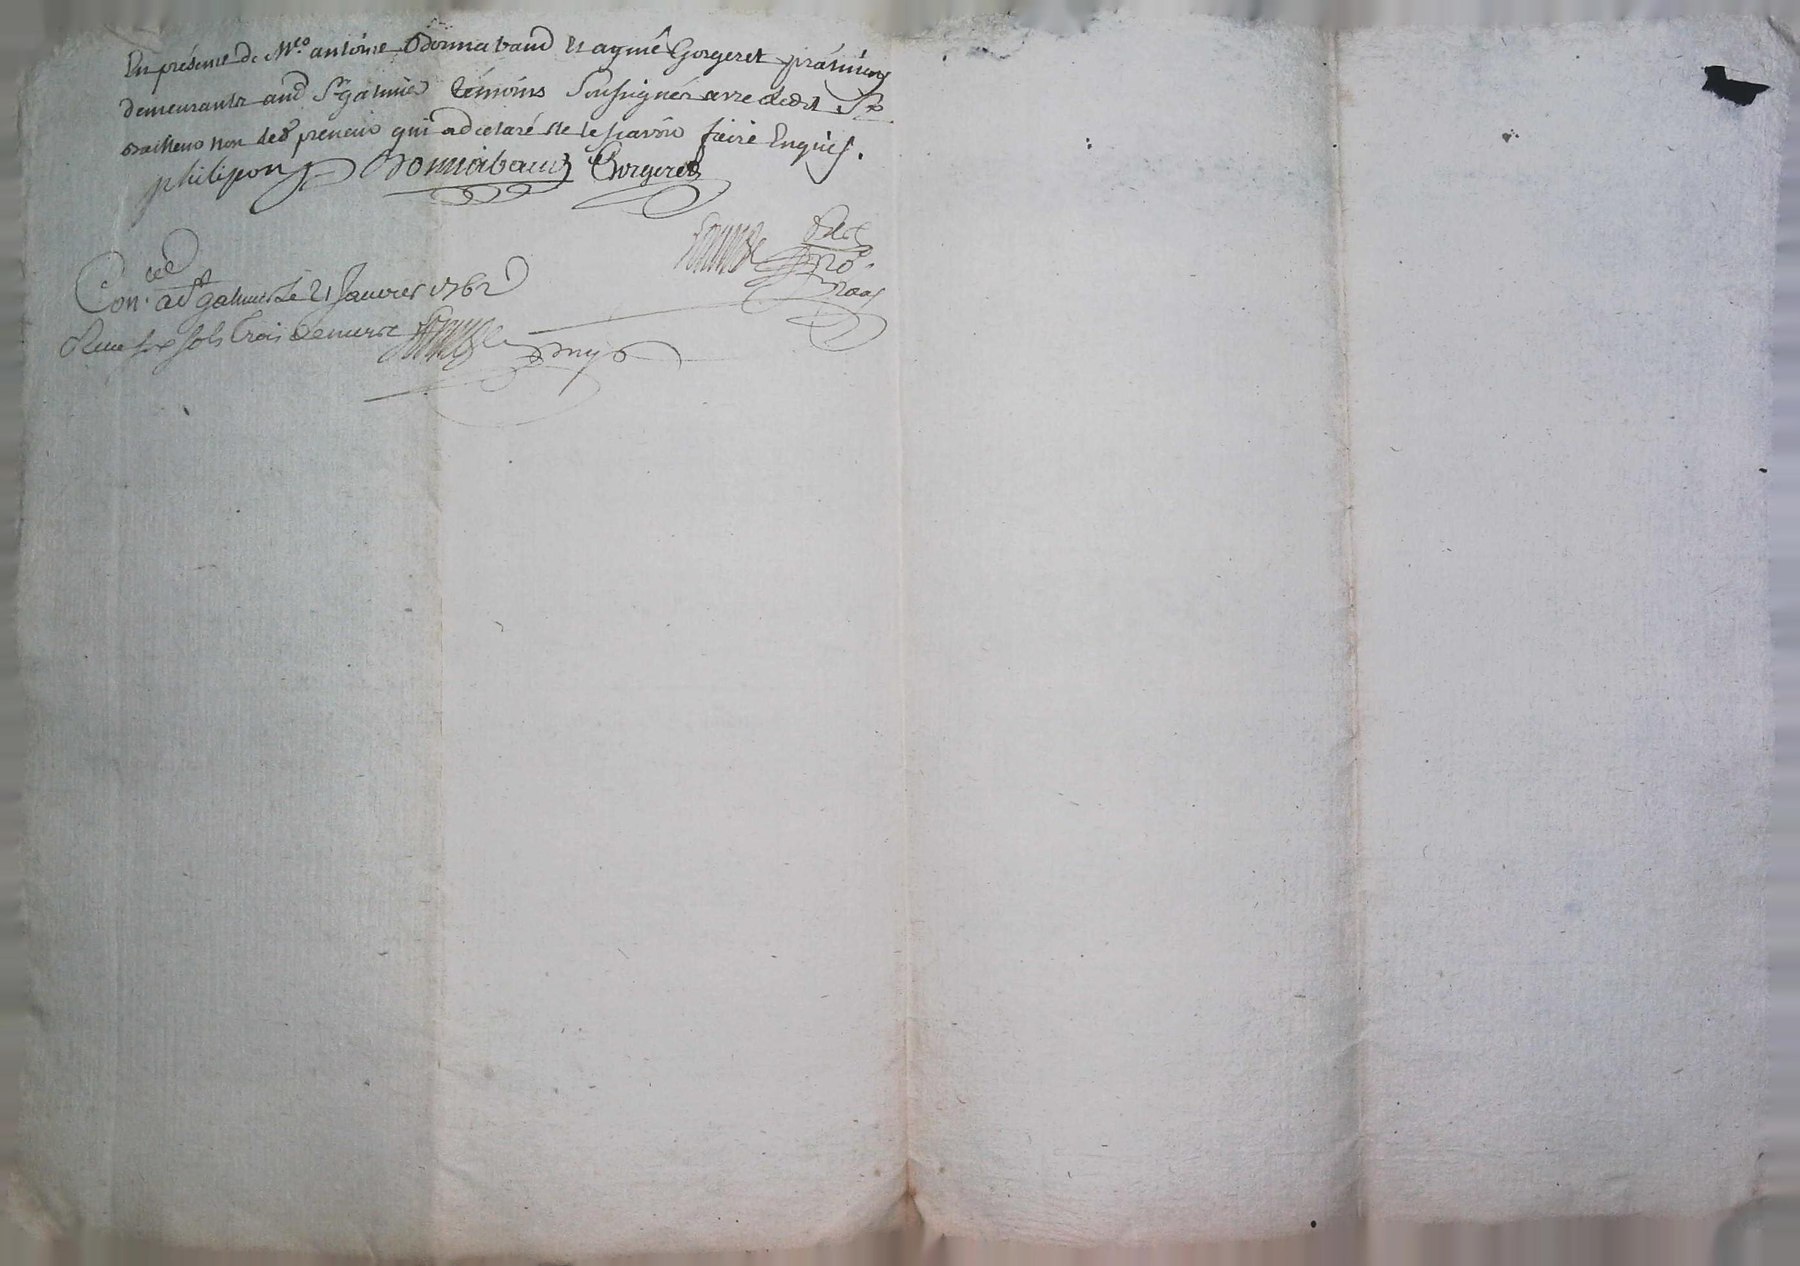 En presence de Me. antoine Bonnabaud Et aymé Gorgeret praticiens
demeurants aud St galmier témoins soussignés avec ledit Sr
bailleur non led preneur qui a declaré ne le sçavoir faire Enquis.
philipon Bonnabaud Gorgeret
Con. a St galmier Le 21 Janvier 1762
Reçu six sols trois deniers